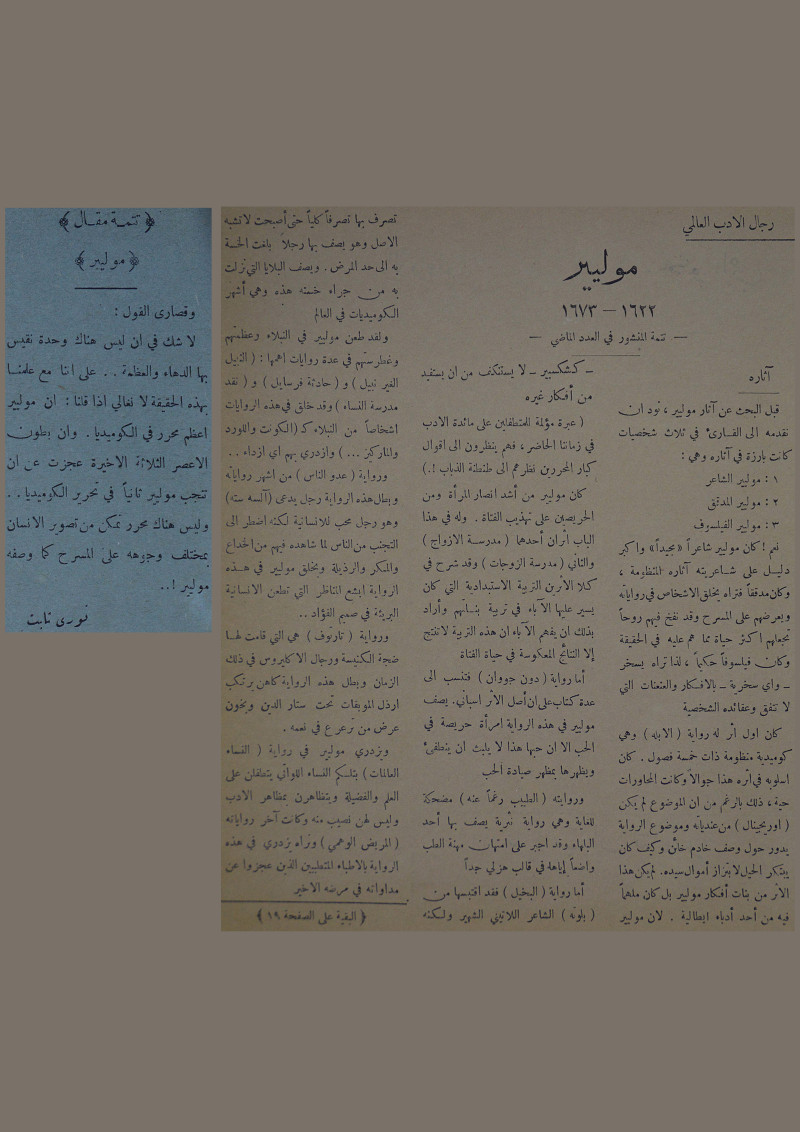 رجال الادب العالمي
موليير
١٦٢٢ – ١٦٧٣
— تتمة المنشور في العدد الماضي —
آثاره
قبل البحث عن آثار موليير ، نود ان
نقدمه الى القارىء في ثلاث شخصيات
كانت بارزة في آثاره وهي :
١ : موليير الشاعر
٢ : موليير المدقق
٣ : موليير الفيلسوف
نعم ! كان موليير شاعراً «مجيداً» واكبر
دليل على شاعريته آثاره المنظومة ،
وكان مدققاً فتراه يخلق الاشخاص في رواياته
ويعرضهم على المسرح وقد نفخ فيهم روحاً
تجعلهم اكثر حياة مما هم عليه في الحقيقة
وكان فيلسوفاً حكيماً ، لذا تراه يسخر
— واي سخرية — بالافكار والعنعنات التي
لا تتفق وعقائده الشخصية
كان اول اثر له رواية ( الابله ) وهي
كوميدية منظومة ذات خمسة فصول . كان
اسلوبه في اثره هذا جوالاً وكانت المحاورات
حية ، ذلك بالرغم من ان الموضوع لم يكن
( اوريجينال ) من عندياته وموضوع الرواية
يدور حول وصف خادم خائن وكيف كان
يبتكر الحيل لابتزاز أموال سيده. لم يكن هذا
الاثر من بنات أفكار موليير بل كان ملهماً
فيه من أحد أدباء ايطالية . لان موليير
– كشكسبير – لا يستنكف من ان يستفيد
من أفكار غيره
( عبرة مؤلمة للمتطفلين على مائدة الادب
في زماننا الحاضر ، فهم ينظرون الى اقوال
كبار المحررين نظرهم الى طنطنة الذباب !.)
كان موليير من أشد انصار المرأة ومن
الحريصين على تهذيب الفتاة . وله في هذا
الباب اثران أحدهما ( مدرسة الازواج )
والثاني ( مدرسة الزوجات ) وقد شرح في
كلا الاثرين التربية الاستبدادية التي كان
يسير عليها الآباء في تربية بناتهم وأراد
بذلك ان يفهم الآباء ان هذه التربية لا تنتج
إلا النتائج المعكوسة في حياة الفتاة
أما رواية ( دون جووان ) فتنسب الى
عدة كتاب على ان أصل الاثر اسباني. يصف
موليير في هذه الرواية امرأة حريصة في
الحب الا ان حبها هذا لا يلبث ان ينطفىء
ويظهرها بمظهر صيادة الحب
وروايته ( الطبيب رغماً عنه ) مضحكة
للغاية وهي رواية نثرية يصف بها أحد
البلهاء وقد اجبر على امتهان مهنة الطب
واضعاً إياها في قالب هزلي جداً
أما رواية ( البخيل ) فقد اقتبسها من
( بلوته ) الشاعر اللاتيني الشهير ولكنه
تصرف بها تصرفاً كلياً حتى أصبحت لا تشبه
الاصل وهو يصف بها رجلاً بلغت الخسة
به الى حد المرض . ويصف البلايا التي نزلت
به من جراء خسته هذه وهي أشهر
الكوميديات في العالم
ولقد طعن موليير في النبلاء وعظمتهم
وغطرستهم في عدة روايات اهمها : ( النبيل
الغير نبيل ) و ( حادثة فرسايل ) و ( نقد
مدرسة النساء ) وقد خلق في هذه الروايات
اشخاصاً من النبلاء كـ ( الكونت واللورد
والماركيز ... ) وازدرى بهم اي ازداء . .
ورواية ( عدو الناس ) من اشهر رواياته
وبطل هذه الرواية رجل يدعى (آلسه سته)
وهو رجل محب للانسانية لكنه اضطر الى
التجنب من الناس لما شاهده فيهم من الخداع
والمكر والرذيلة ويخلق موليير في هذه
الرواية ابشع المناظر التي تطعن الانسانية
البريئة في صميم الفؤاد . .
ورواية ( تارتوف ) هي التي قامت لها
ضجة الكنيسة ورجال الاكليروس في ذلك
الزمان وبطل هذه الرواية كاهن يرتكب
ارذل الموبقات تحت ستار الدين ويخون
عرض من ترعرع في نعمه .
ويزدري موليير في رواية ( النساء
العالمات ) بتلكم النساء اللواتي يتطفلن على
العلم والفضيلة ويتظاهرن بمظاهر الادب
وليس لهن نصيب منه وكانت آخر رواياته
( المريض الوهمي ) وتراه يزدري في هذه
الرواية بالاطباء المتطببين الذين عجزوا عن
مداواته في مرضه الاخير
﴿ البقية على الصفحة ١٩ ﴾
﴿ تتمة مقال ﴾
﴿ موليير ﴾
وقصارى القول :
لا شك في ان ليس هناك وحدة نقيس
بها الدهاء والعظمة . . على اننا مع علمنا
بهذه الحقيقة لا نغالي اذا قلنا : ان موليير
اعظم محرر في الكوميديا . وان بطون
الاعصر الثلاثة الاخيرة عجزت عن ان
تنجب موليير ثانياً في تحرير الكوميديا . .
وليس هناك محرر تمكن من تصوير الانسان
بمختلف وجوهه على المسرح كما وصفه
موليير ! . .
فوزى ثابت